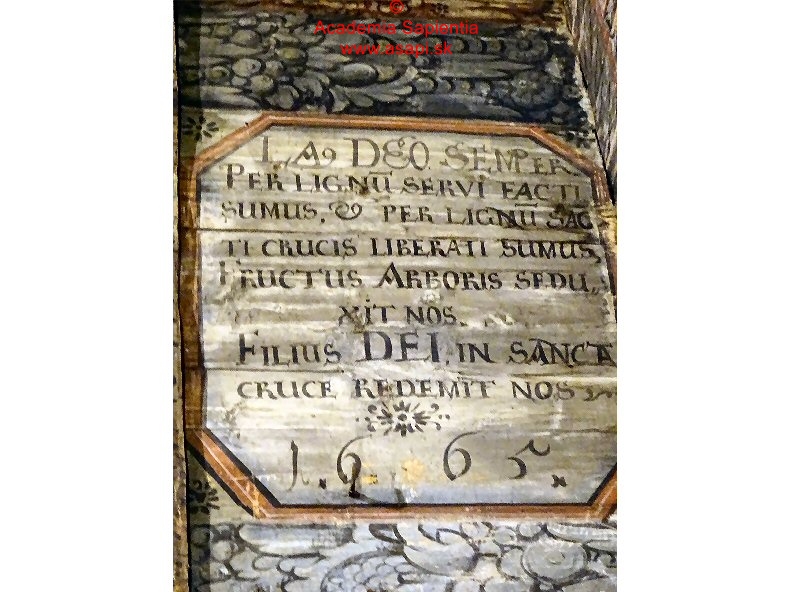 ©
Academia Sapientia
www.asapi.sk
LAꝰ DEO SEMPER
PER LIGNŪ SERVI FACTI
SUMUS, & PER LIGNŪ SAC
TI CRUCIS LIBERATI SUMUS,
FRUCTUS ARBORIS SEDU,,
XIT NOS.
FILIUS DEI IN SANCTA
CRUCE REDEMIT NOS
1.6 65.